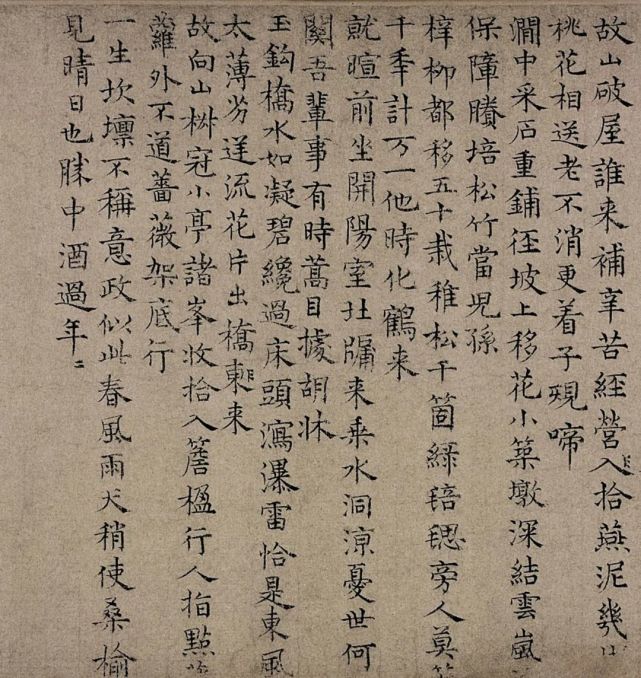 故山破屋誰来補辛苦経營入拾燕泥㡬
桃花相送老不消更着子規啼
澗中采石重鋪径坡上移花小築墩深結雲嵐
保障賸培松竹當児孫
梓柳都移五十栽稚松千箇緑旁人莫
千季計万一他時化鶴来
就暄前坐開陽室北牖来乗水洞涼憂世何
關吾輩事有時蒿目據胡牀
玉鈎橋水如凝碧纔過床頭瀉瀑雷恰是東風
太薄劣逆流花片出橋東来
故向山椒冠小亭諸峯收拾入簷楹行人指點
蘿外不道薔薇架底行
一生坎壈不稱意政似此春風雨天稍使桑榆
見晴日也勝中酒過年〻